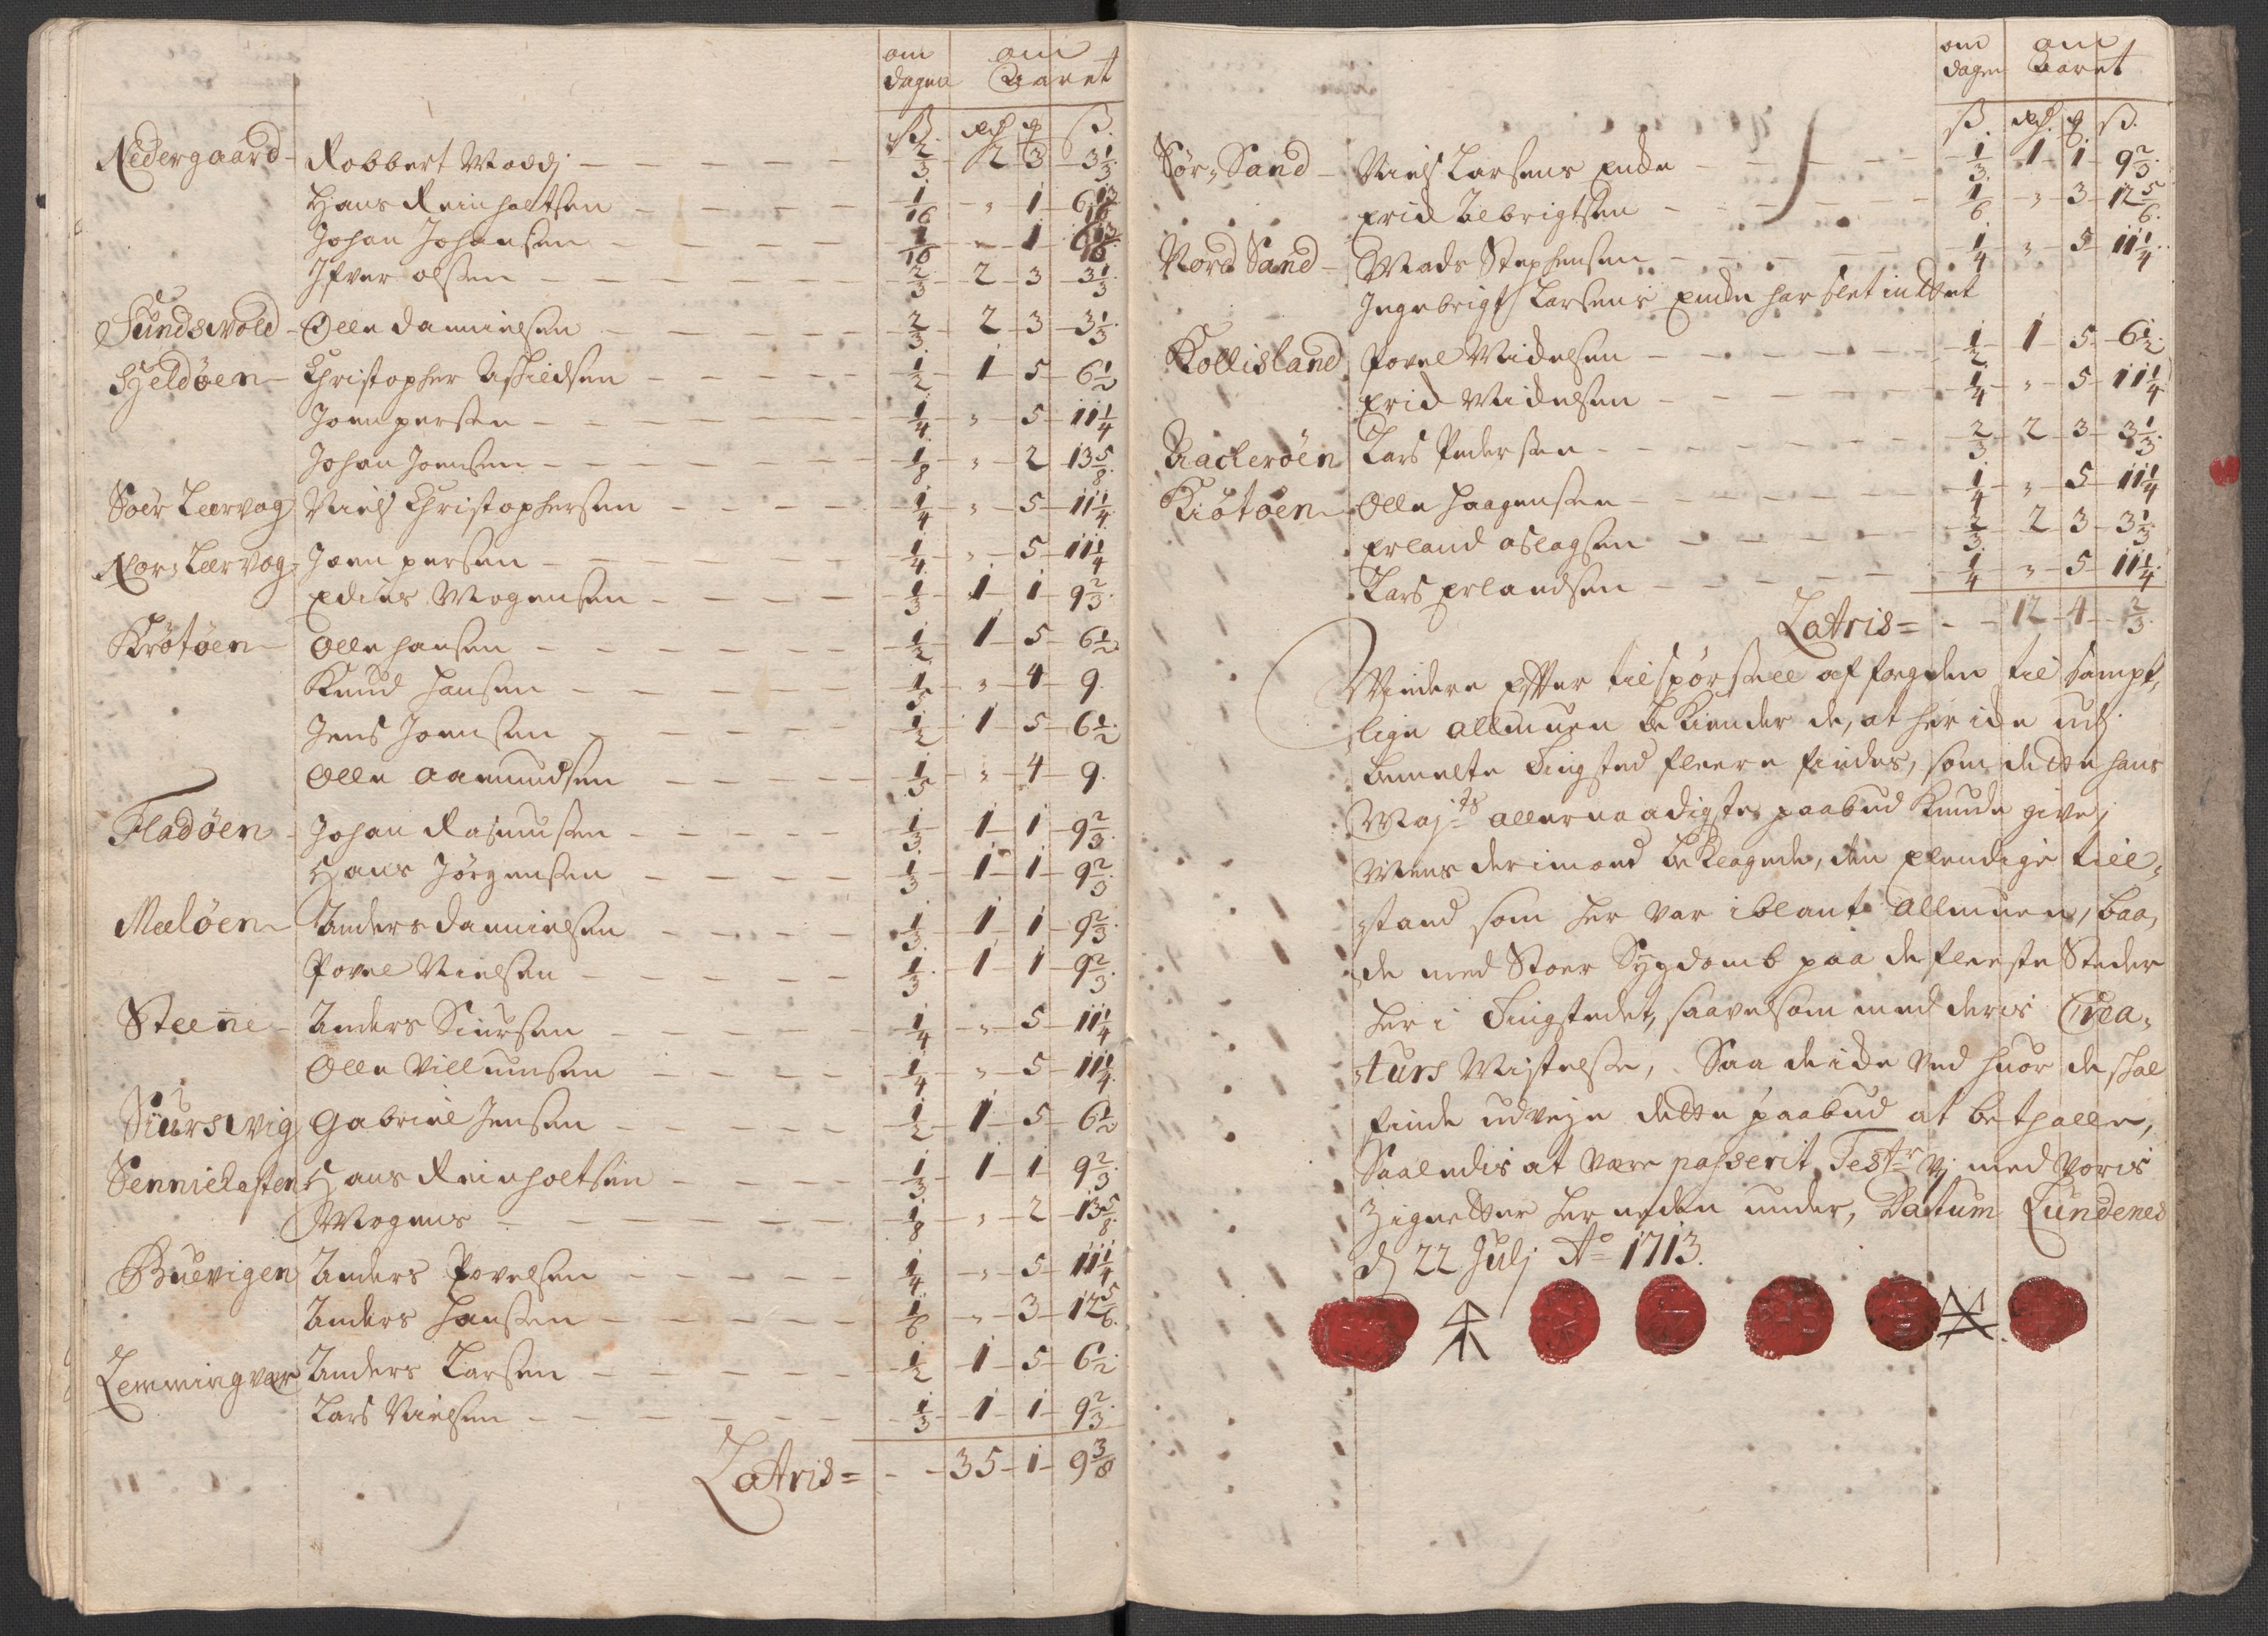 om om
dagen Aaret
ß rdr q ß.
Nedergaard - Robbert Moddj - 2/3 - 2 - 3 - 3 1/3
Hans Reinholtsen - 1/16 - „ - 1 - 6 13/16
Johan Johansen - 1/16 - „ - 1 - 6 13/16
Ifver olsen - 2/3 - 2 - 3 - 3 1/3
Sundsvold - Olle Dannielsen - 2/3 - 2 - 3 - 3 1/3
Hjeldøen - Christopher - 1/2 - 1 - 5 - 6 1/2
Joen persen - 1/4 - „ - 5 - 11 1/4
Johan Joensen - 1/8 - „ - 2 - 13 5/8
Soer Leervog Niels Christophersen - 1/4 - „ - 5 - 11 1/4
Nor, Leervog, Joen persen - 1/4 - „ - 5 - 11 1/4
Mogensen - 1/3 - 1 - 1 - 9 2/3
Krøtøen - Olle Hansen - 1/2 - 1 - 5 - 6 1/2
Knud Hansen - 1/5 - „ - 4 - 9.
Jens Joensen - 1/2 - 1 - 5 - 6 1/2
Olle Aamundsen - 1/5 - „ - 4 - 9.
Fladøen - Johan Rasmussen - 1/3 - 1 - 1 - 9 2/3
Hans Jørgensen - 1/3 - 1 - 1 - 9 2/3
Meeløen - Anders Dannielsen - 1/3 - 1 - 1 - 9 2/3
Povel Nielsen - 1/3 - 1 - 1 - 9 2/3
Steene - Anders Siursen - 1/4 - „ - 5 - 11 1/4
Olle Villumsen - 1/4 - „ - 5 - 11 1/4
Siursvig Gabriel Jensen - 1/2 - 1 - 5 - 6 1/2
Hans Reinholtsen - 1/3 - 1 - 1 - 9 2/3
Mogens - 1/8 - „ - 2 - 13 5/8
Buevigen Anders Povelsen - 1/4 - „ - 5 - 11 1/4
Anders Hansen - 1/6 - „ - 3 - 12 5/6
Lemmingvær Anders Larsen - 1/2 - 1 - 5 - 6 1/2
Lars Nielsen - 1/3 - 1 - 1 - 9 2/3
Latris = - - 35 - 1 - 9 3/8
om om
dagen Aaret
ß rdr. q. ß.
Sør, Sand - Niels Larsens Enche - 1/3 - 1 - 1 - 9 2/3
Erich Elbrigtsen - 1/6 - „ - 3 - 12 5/6
Nord Sand - Mads Stephensen - 1/4 - „ - 5 - 11 1/4
Ingebrigt Larsens Encke har slet indtet
Kollisland Povel Michelsen - 1/2 - 1 - 5 - 6 1/2
Erich Michelsen - 1/4 - „ - 5 - 11 1/4
Aackerøen Lars Pedersen - 2/3 - 2 - 3 - 3 1/3
Kiøtøen - Olle Haagensen - 1/4 - „ - 5 - 11 1/4
Erland Aslagsen - 2/3 - 2 - 3 - 3 1/3
Lars Erlandsen - 1/4 - „ - 5 - 11 1/4
Latris = - - 12 - 4 - 2/3
Videre Efter tilspørsell af fogden til sampt,
lige Allmuen bekiender de, at her icke udj
bemelte Tingsted fleere findes, som dette hans
Maj:ts allernaadigste paabud kunde give,
Mens derimod beklagede, den Elendige till,
stand som her var iblant Allmuen, baa,
de med Stoer Sygdomb paa de fleeste Steder
her i Tingstedet, saavelsom med deris Crea,
turs Mistelse, Saa de icke ved huor de skal
finde udveje dette paabud at bethalle,
Saaledis at være passerit, Test:r Vj med Voris
Zignetter her neden under, Datum Lundenes
d 22 Julj Ao 1713.